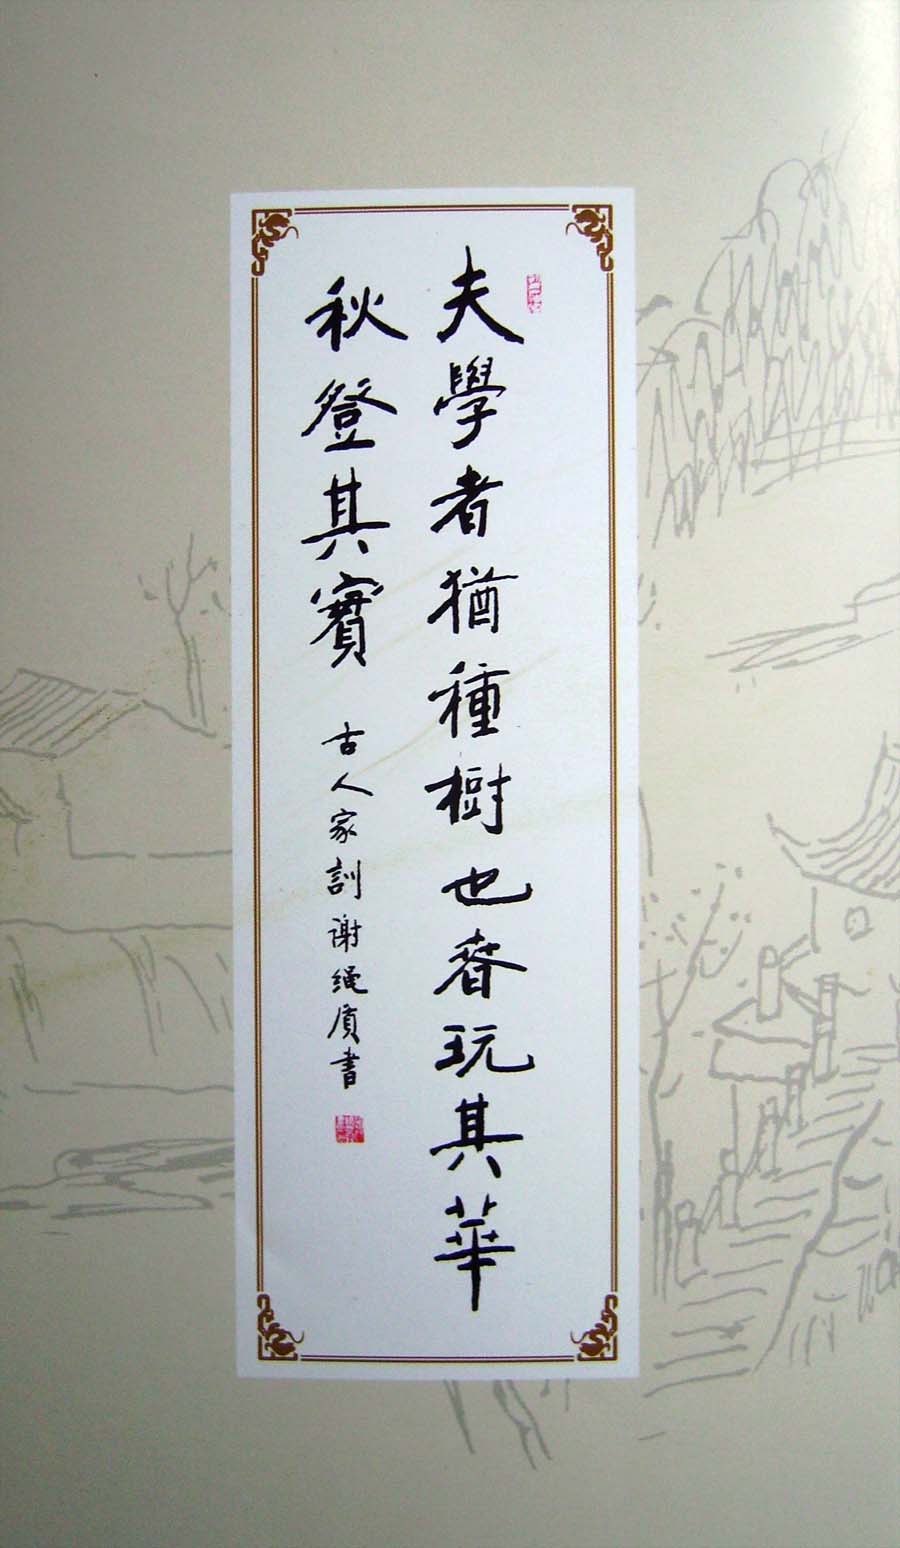 夫學者猶種樹也春玩其華
秋登其實 古人家訓谢绳质書